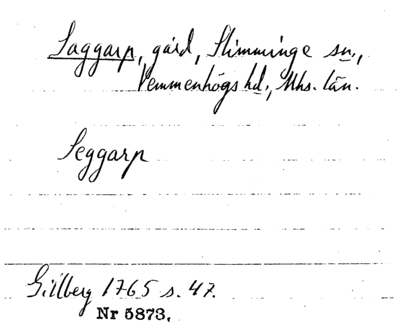 Saggarp, gård, Slimminge sn.,
Vemmenhögs hd., Mhs. län.
Seggarp
Gillberg 1765 s. 47.
Nr 5873.